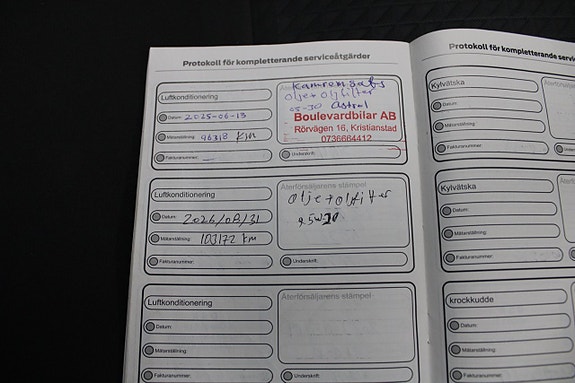 Protokoll för kompletterande serviceåtgärder
Luftkonditionering
Datum: 2025-06-13
Mätarställning: 96318 KM
Fakturanummer:
Kamremsats
Olje+Oljfilter
05-30 Astral
Boulevardbilar AB
Rörvägen 16, Kristianstad
0736664412
Underskrift:
Luftkonditionering
Datum:
Mätarställning: 103172 km
Fakturanummer:
Återförsäljarens stämpel
Olje+oljfilter
Underskrift:
Luftkonditionering
Datum:
Mätarställning:
Fakturanummer:
Återförsäljarens stämpel
Underskrift:
Protokoll för kompletterande
Kylvätska
Datum:
Mätarställning:
Fakturanummer:
Kylvätska
Datum:
Mätarställning:
Fakturanummer:
krockkudde
Datum:
Mätarställning:
Fakturanummer: